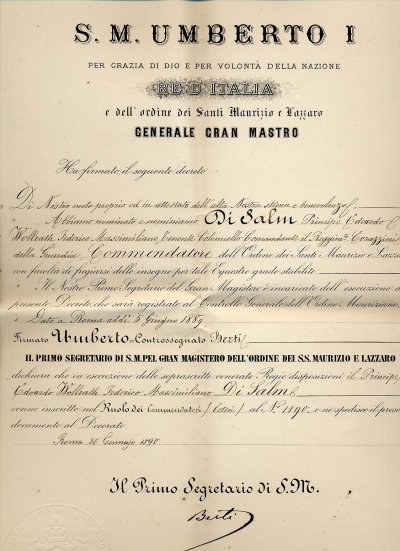 S. M. UMBERTO I
PER GRAZIA DI DIO E PER VOLONTÀ DELLA NAZIONE
RE D'ITALIA
e dell'ordine dei Santi Maurizio e Lazzaro
GENERALE GRAN MASTRO
Ha firmato il seguente decreto
Di Nostro moto proprio ed in attestato dell'alta Nostra stima e benevolenza
" Abbiamo nominato e nominiamo Di Salm Principe Edoardo
Wollrath Federico Massimiliano, Tenente Colonnello Comandante il Reggim.
della Guardia, Commendatore dell'Ordine dei Santi Maurizio e Lazza
con facoltà di fregiarsi delle insegne per tale Equestre grado stabilite
" Il Nostro Primo Segretario del Gran Magistero è incaricato dell'esecuzione
presente Decreto che sarà registrato al Controllo Generale dell'Ordine Mauriziano.
" Dato a Roma addì 5 Giugno 1889
Firmato Umberto Controssegnato Berti
IL PRIMO SEGRETARIO DI S.M. PEL GRAN MAGISTERO DELL'ORDINE DEI S.S. MAURIZIO E LAZZARO
dichiara che in esecuzione delle soprascritte venerate Regie disposizioni il Principe
Edoardo Wollrath Federico Massimiliano Di Salm
venne inscritto nel Ruolo dei Commendatori (Esteri) al N.º 1190, e ne spedisce il prese
documento al Decorato.
Roma 20 Gennajo 1890.
Il Primo Segretario di S.M.
Berti